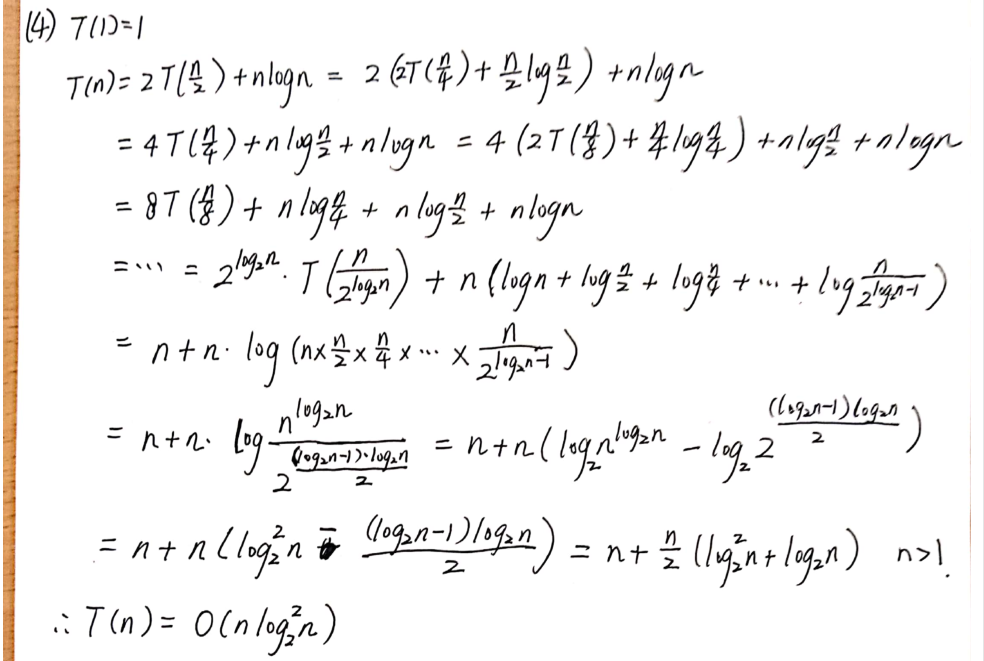 (4) T(1)=1
T(n)=2T(n/2)+nlogn = 2(2T(n/4)+n/2 log n/2)+nlogn
=4T(n/4)+nlog n/2+nlogn = 4(2T(n/8)+n/4 log n/4)+nlog n/2+nlogn
=8T(n/8)+nlog n/4+nlog n/2+nlogn
=⋯=2^{log₂n}·T(n/2^{log₂n})+n(logn+log n/2+log n/4+⋯+log n/2^{log₂n-1})
=n+n·log(n×n/2×n/4×⋯×n/2^{log₂n-1})
=n+n·log n^{log₂n}/2^{(log₂n-1)·log₂n/2} = n+n(log₂n^{log₂n}-log₂2^{(log₂n-1)log₂n/2})
=n+n(log₂²n-(log₂n-1)log₂n/2)=n+n/2(log₂²n+log₂n) n>1.
∴T(n)=O(nlog₂²n)